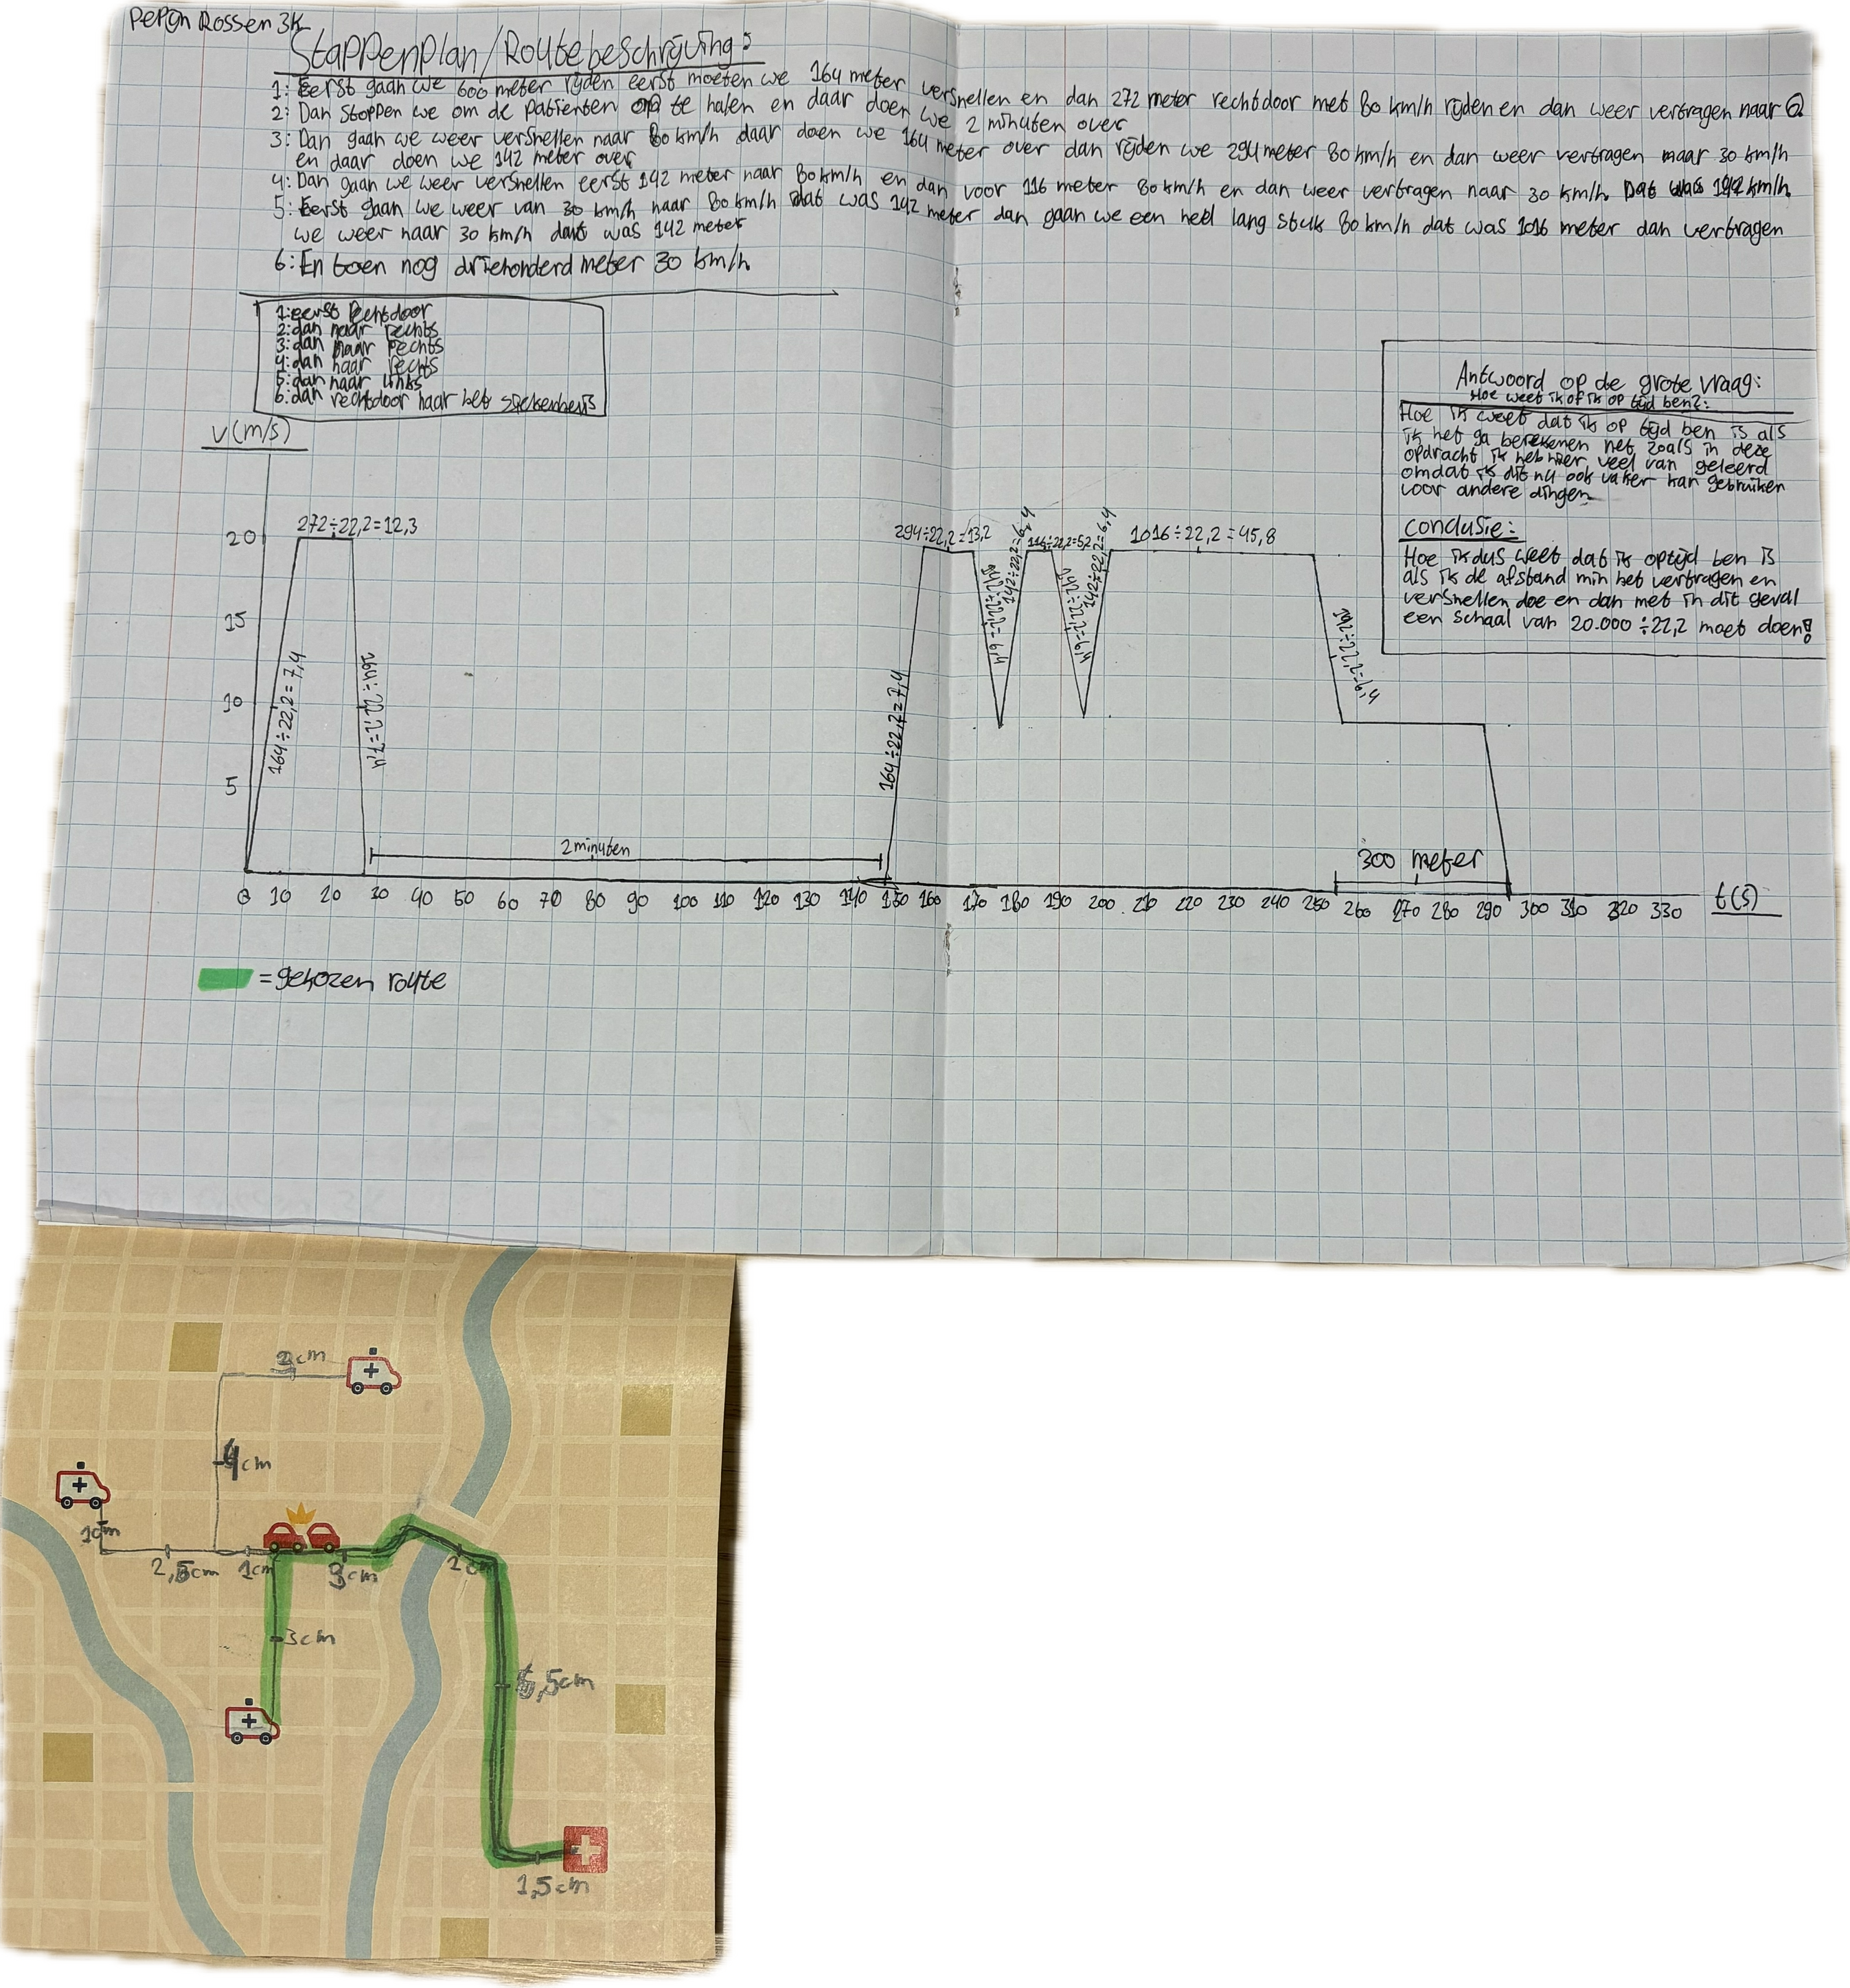 Pepijn Rossen 3K
Stappenplan/Routebeschrijving:
1: Eerst gaan we 600 meter rijden eerst moeten we 164 meter versnellen en dan 272 meter rechtdoor met 80 km/h rijden en dan weer vertragen naar 0
2: Dan stoppen we om de patienten op te halen en daar doen we 2 minuten over
3: Dan gaan we weer versnellen naar 80 km/h daar doen we 164 meter over dan rijden we 294 meter 80 km/h en dan weer vertragen naar 30 km/h
en daar doen we 142 meter over
4: Dan gaan we weer versnellen eerst 142 meter naar 80 km/h en dan voor 116 meter 80 km/h en dan weer vertragen naar 30 km/h. Dat was 142 km/h.
5: Eerst gaan we weer van 30 km/h naar 80 km/h dat was 142 meter dan gaan we een heel lang stuk 80 km/h dat was 1016 meter dan vertragen
we weer naar 30 km/h dat was 142 meter
6: En toen nog driehonderd meter 30 km/h.
1: eerst Rechtdoor
2: dan naar rechts
3: dan naar rechts
4: dan naar rechts
5: dan naar links
6: dan rechtdoor naar het siekenheis
Antwoord op de grote vraag:
Hoe weet ik of ik op tijd ben?:
Hoe ik weet dat ik op tijd ben is als
ik het ga berekenen net zoals in deze
opdracht ik heb hier veel van geleerd
omdat ik dit nu ook vaker kan gebruiken
voor andere dingen
conclusie:
Hoe ik dus weet dat ik optijd ben is
als ik de afstand min het vertragen en
versnellen doe en dan met in dit geval
een schaal van 20.000 ÷ 22,2 moet doen!
v(m/s)
20
15
10
5
272÷22,2=12,3
164÷22,2=7,4
164÷22,2=7,4
2 minuten
164÷22,2=7,4
294÷22,2=13,2
142÷22,2=6,4
142÷22,2=6,4
116÷22,2=5,2
142÷22,2=6,4
142÷22,2=6,4
1016÷22,2=45,8
142÷22,2=6,4
300 meter
0 10 20 30 40 50 60 70 80 90 100 110 120 130 140 150 160 170 180 190 200 210 220 230 240 250 260 270 280 290 300 310 320 330 t(s)
=gekozen route
2cm
4cm
1cm
2,5cm
1cm
3cm
2cm
3cm
6,5cm
1,5cm